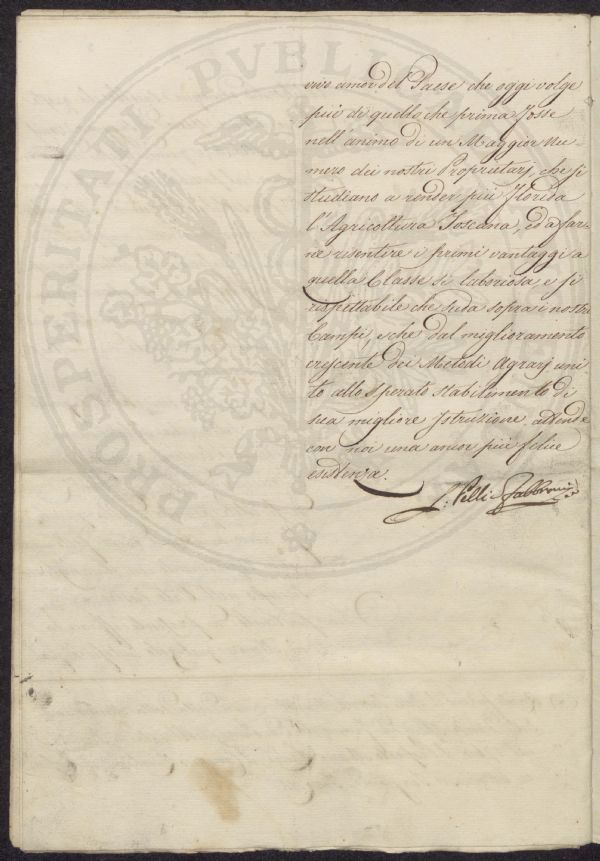 PROSPERITATI PVBLICAE
vivo amor del Paese che oggi volge
più di quello che prima fosse
nell'animo di un Maggior Nu-
mero dei nostri Proprietarj, che si
studiano a render più florida
l'Agricoltura Toscana, ed a far-
ne risentire i primi vantaggi a
quella Classe sì laboriosa, e sì
rispettabile che suda sopra i nostri
Campi, e che dal miglioramento
crescente dei Metodi Agrarj uni-
to allo sperato stabilimento di
sua migliore Istruzione attende
con noi una ancor più felice
esistenza.
Pelli Fabbroni